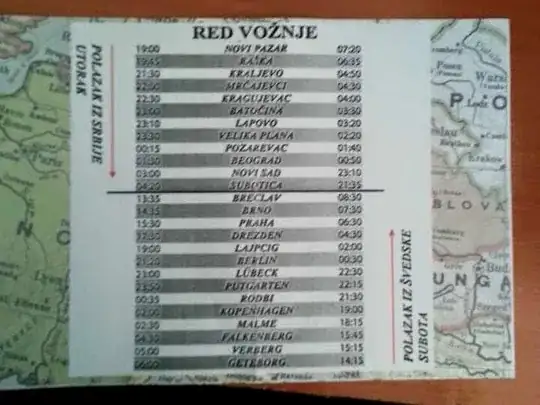 RED VOŽNJE
POLAZAK IZ SRBIJE
UTORAK
19:00 NOVI PAZAR 07:20
19:45 RAŠKA 06:35
21:30 KRALJEVO 04:50
22:00 MRČAJEVCI 04:30
22:30 KRAGUJEVAC 04:00
23:00 BATOČINA 03:30
23:10 LAPOVO 03:20
23:30 VELIKA PLANA 02:20
00:15 POZAREVAC 01:40
01:30 BEOGRAD 00:50
03:00 NOVI SAD 23:10
04:20 SUBOTICA 21:35
13:35 BRECLAV 08:30
14:15 BRNO 07:30
15:30 PRAHA 06:30
17:30 DREZDEN 04:30
19:00 LAJPCIG 02:00
21:20 BERLIN 00:30
23:00 LÜBECK 22:30
23:50 PUTGARTEN 22:15
00:35 RODBI 21:30
02:00 KOPENHAGEN 19:00
02:30 MALME 18:15
04:30 FALKENBERG 15:45
05:00 VERBERG 15:15
06:00 GETEBORG 14:15
POLAZAK IZ ŠVEDSKE
SUBOTA